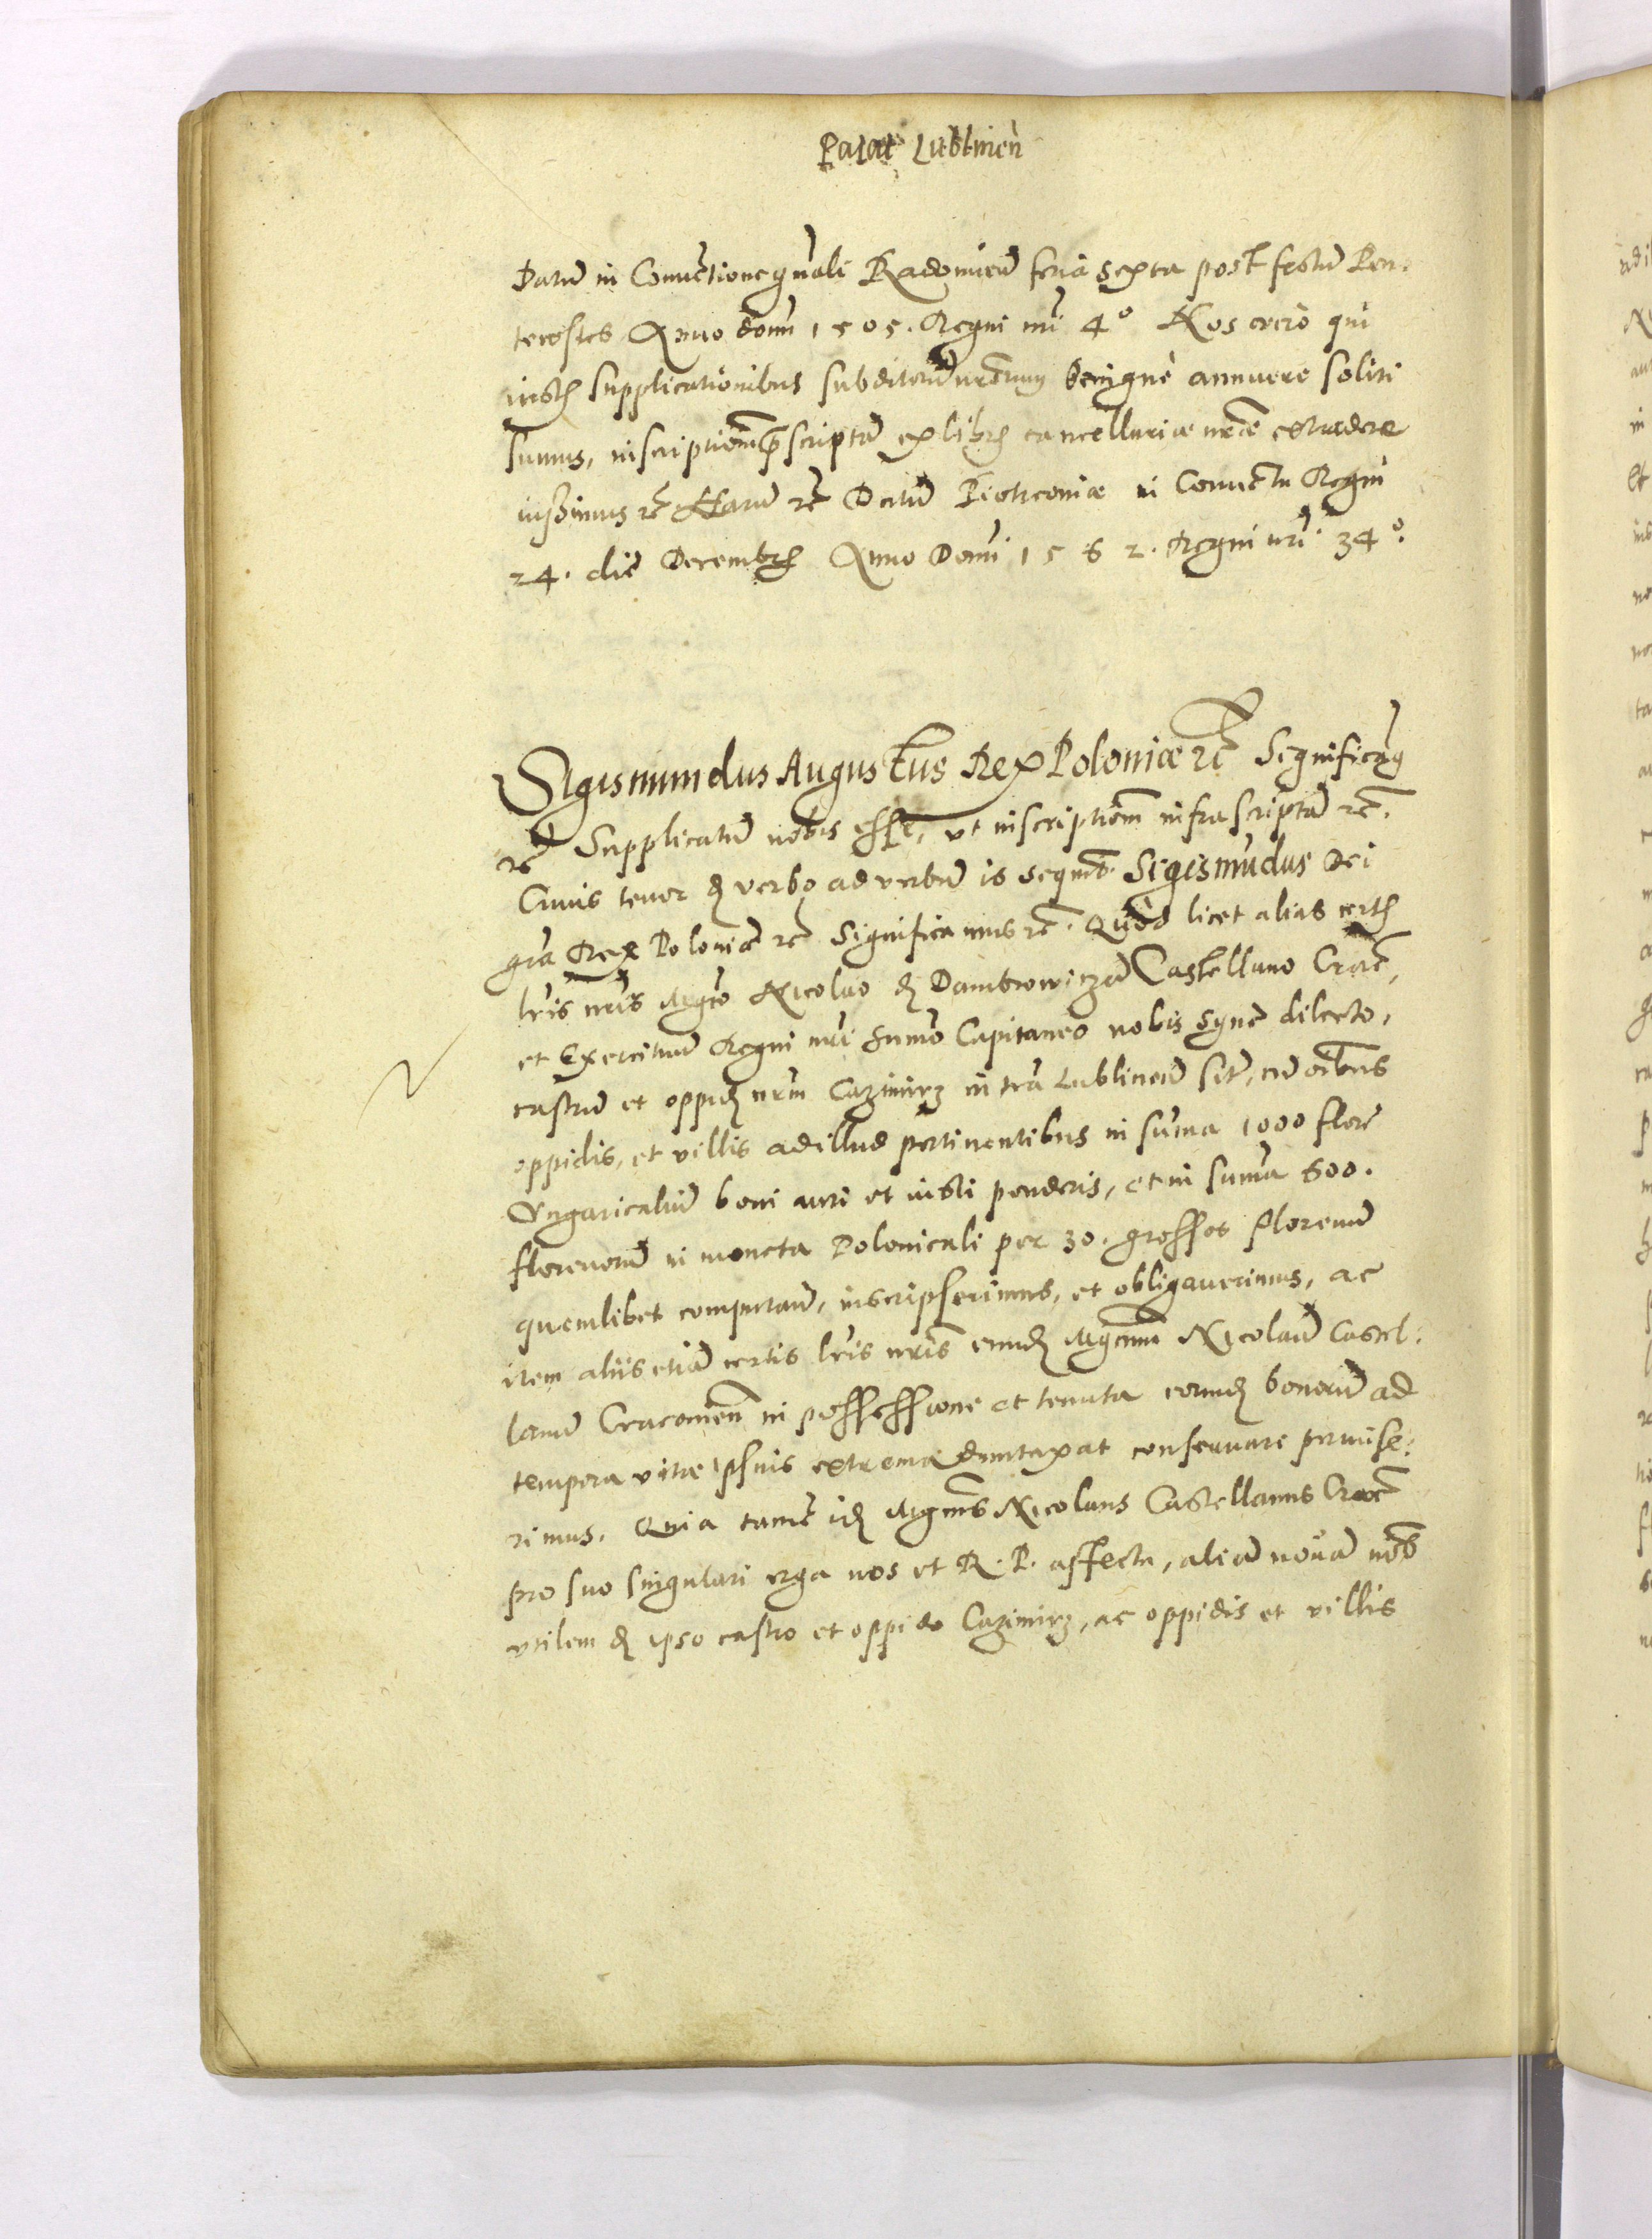 Palat Lublinen
Datum in Conuentione gnali Radomien feria sexta post festum Pen:
tecostes Anno domi 1505. Regni nri 4º Nos vero qui
iustis supplicationibus subditorum nrorum benigne annuere soliti
sumus, inscriptionem pscriptam ex libris cancellariæ nræ extradere
iussimus etc Harum etc Datum Piotrcouiæ in Conuentu Regni
24. die Decembris Anno Domi 1562. Regni nri 34º.
Sigismundus Augustus Rex Poloniæ etc Significamus
etc Supplicatum nobis esse, vt inscriptionem infrascriptam etc.
Cuius tenor de verbo ad verbum is sequitur. Sigismudus Dei
gra Rex Poloniæ etc Significamus etc. Quod licet alias certis
lris nris Mgco Nicolao de Dambrowicza Castellano Cracoe,
et Exercituum Regni nri Sumo Capitaneo nobis syncere dilecto,
castrum et oppidum nrm Cazimirz in tra Lublinen situm, cum oibus
oppidis, et villis ad illud pertinentibus in suma 1000 flore
Vngaricalium boni auri et iusti ponderis, et in suma 600.
florenorum in moneta Polonicali per 30. grossos florenum
quemlibet computan, inscripserimus, et obligauerimus, ac
item aliis etiam certis lris nris eundem Mgcum Nicolaum Castel:
lanum Cracouien in possessione et tenuta eorundem bonorum ad
tempora vitæ ipsius extrema duntaxat conseruare promise:
rimus. Quia tamen idem Mgcus Nicolaus Castellanus Cracoe
pro suo singulari erga nos et R. P. affectu, aliam nouam nobis
vtilem de ipso castro et oppido Cazimirz, ac oppidis et villis